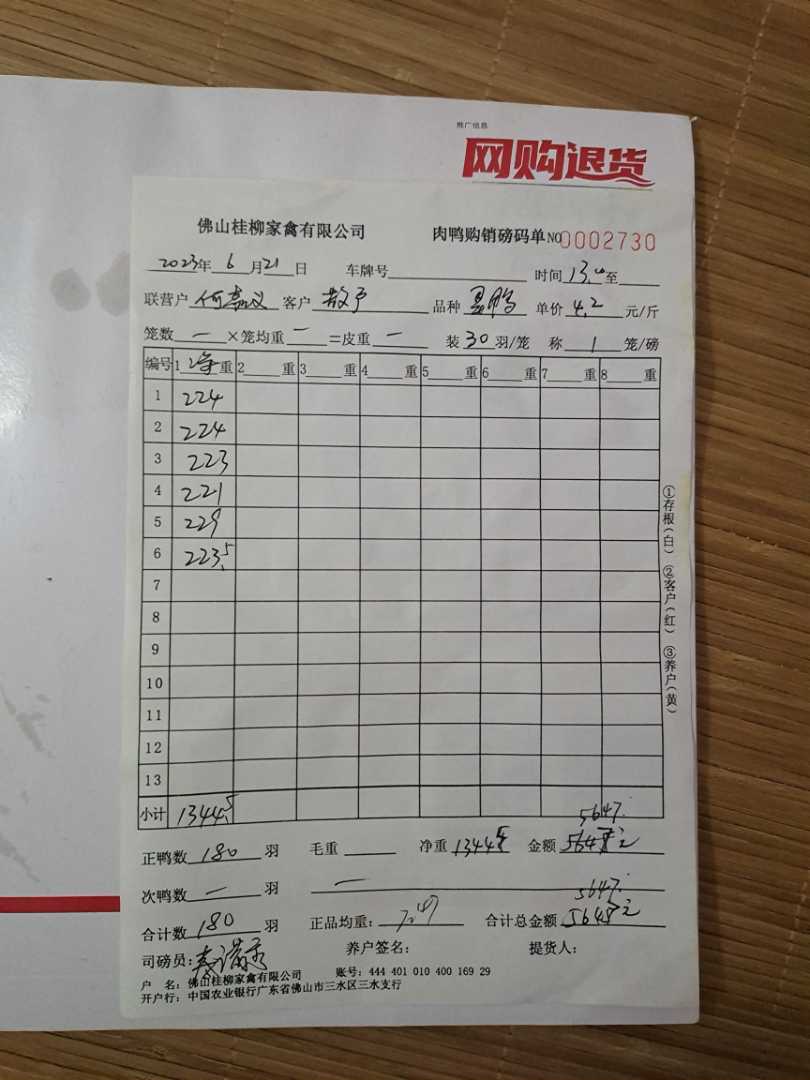 推广信息
网购退货
佛山桂柳家禽有限公司 肉鸭购销磅码单 NO 0002730
2023年 6 月 21 日 车牌号 时间 13. 至
联营户 何 义 客户 散户 品种 鸭 单价 4.2 元/斤
笼数 一 ×笼均重 一 =皮重 一 装 30 羽/笼 称 1 笼/磅
编号 1 净 重 2 重 3 重 4 重 5 重 6 重 7 重 8 重
1 224
2 224
3 223
4 221
5 229
6 223.5
7
8
9
10
11
12
13
小计 1344.5
5647.
正鸭数 180 羽 毛重 净重 1344.5 金额 元
次鸭数 一 羽 一
5647.
合计数 180 羽 正品均重: 7.47 合计总金额 元
司磅员: 养户签名: 提货人:
户 名: 佛山桂柳家禽有限公司 账号: 444 401 010 400 169 29
开户行: 中国农业银行广东省佛山市三水区三水支行
①存根(白) ②客户(红) ③养户(黄)